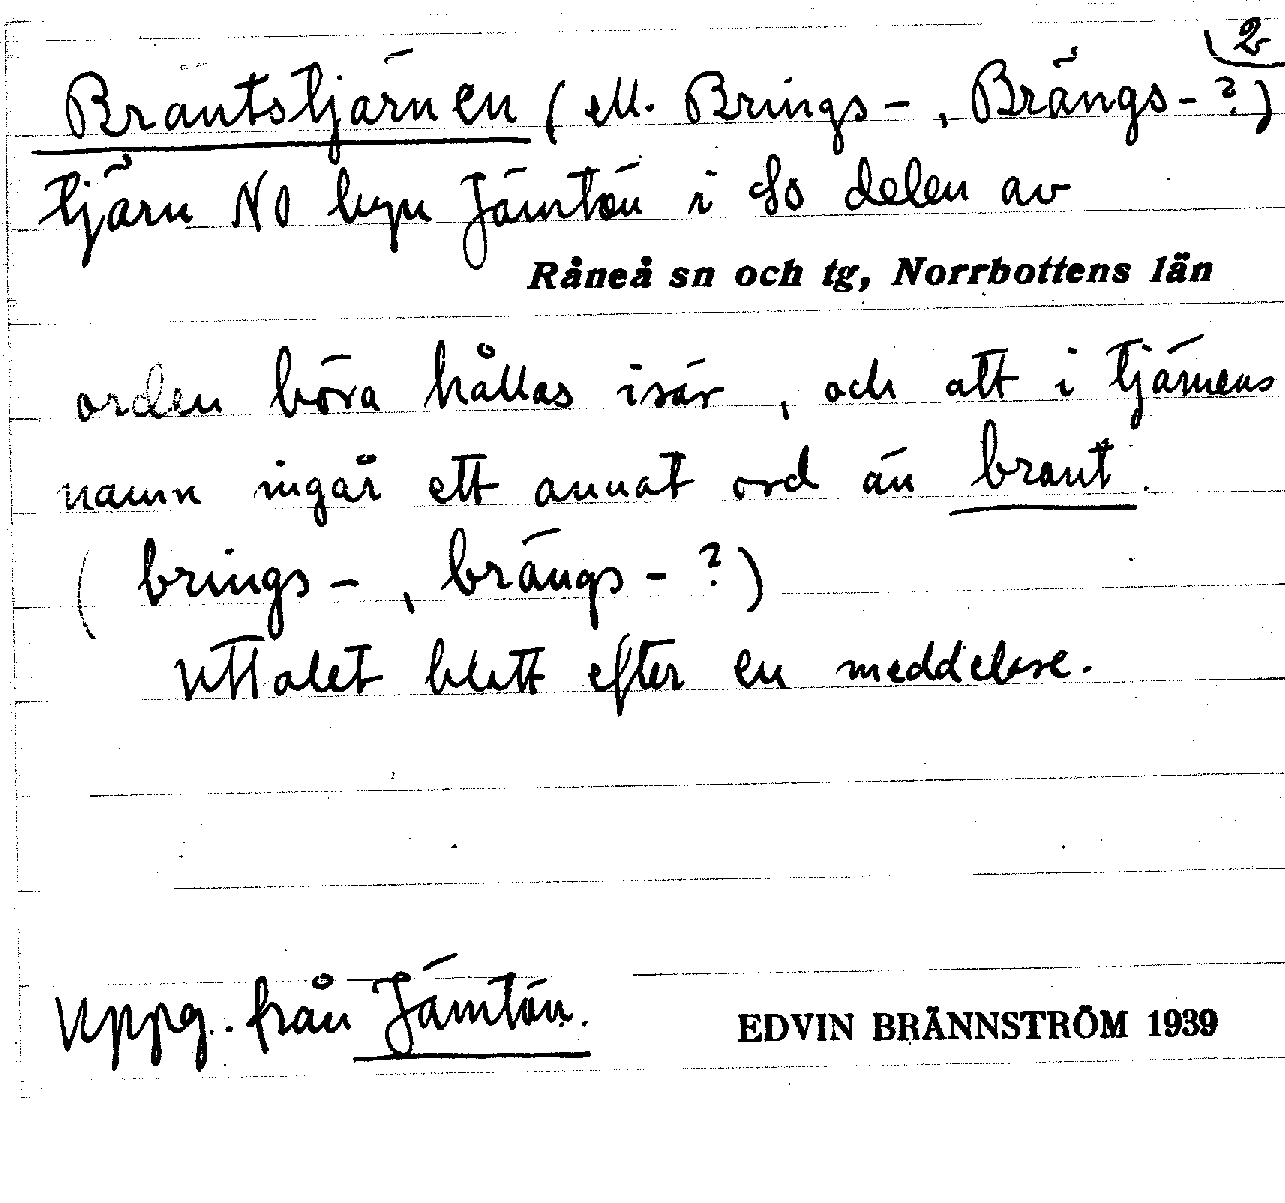 2
Brantstjärnen (ell. Brings-, Brängs-?)
tjärn NO byn Jämtön i So delen av
Råneå sn och tg, Norrbottens län
orden böra hållas isär, och att i tjärnens
namn ingår ett annat ord än brant.
(brings-, brängs-?)
Uttalet blott efter en meddelare.
Uppg. från Jämtön.
EDVIN BRÄNNSTRÖM 1939